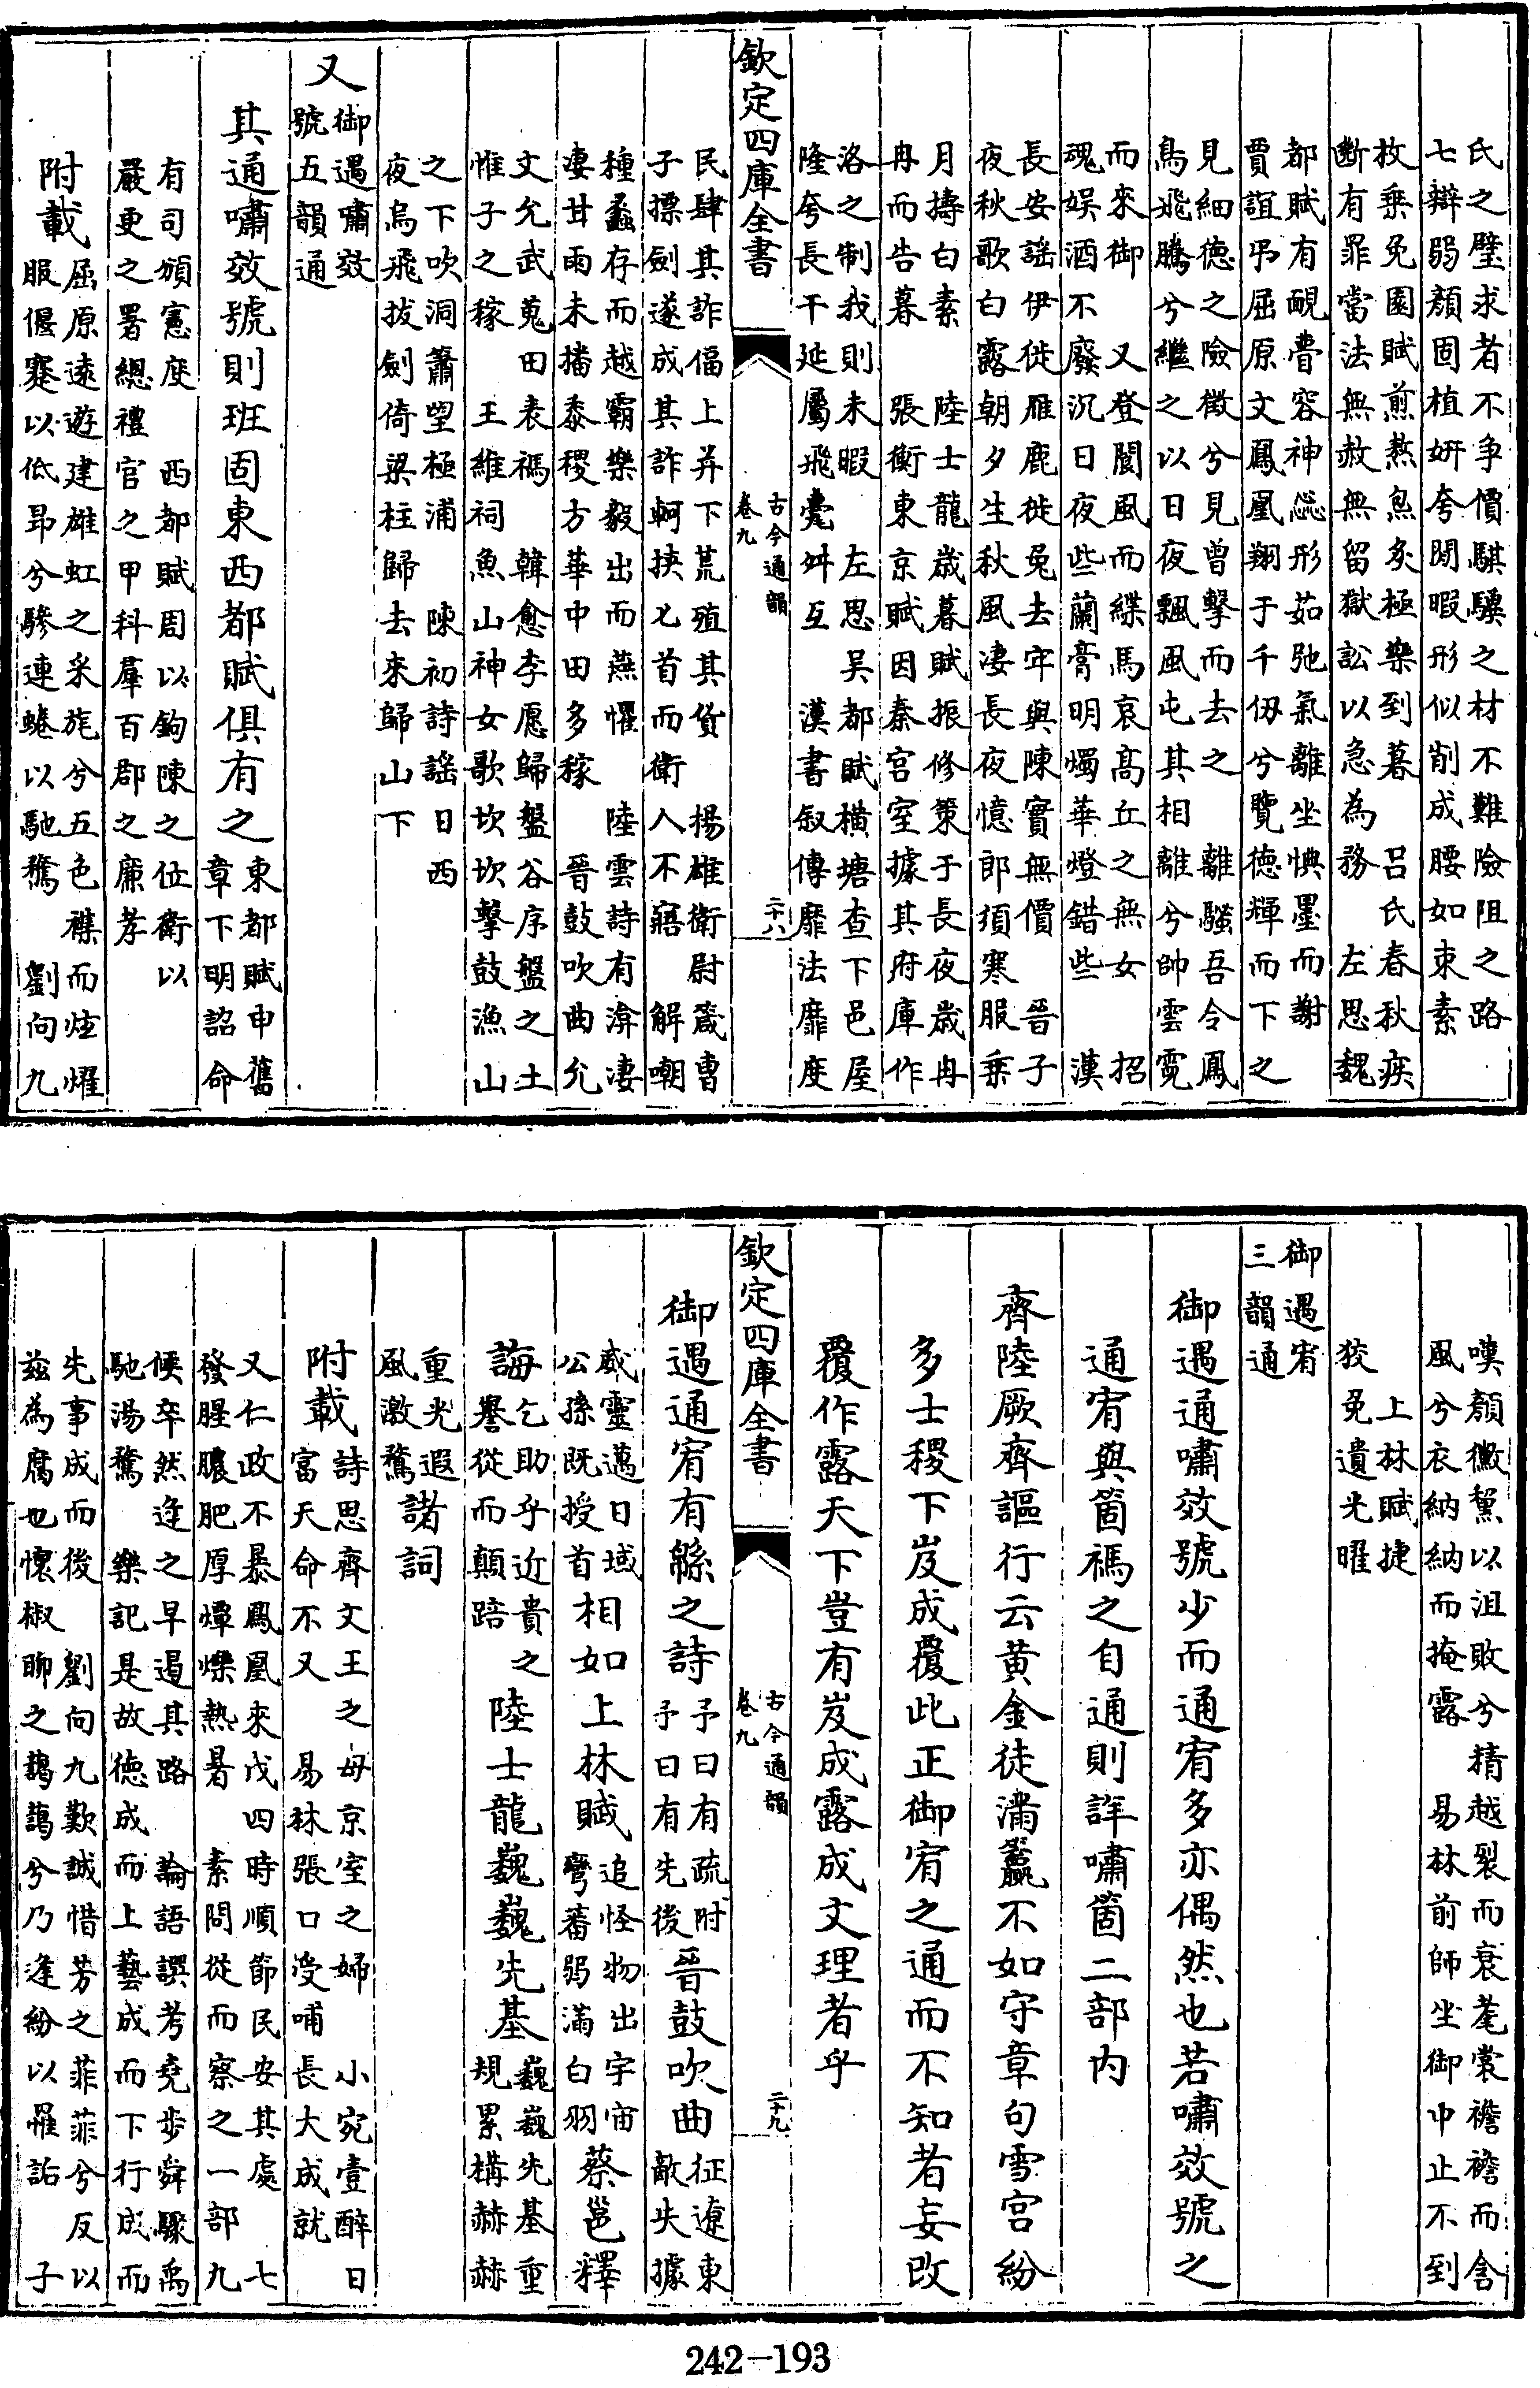 氏之璧求者不爭價騏驥之材不難險阻之路
七辯弱顏固植妍夸閒暇形似削成腰如束素
枚乗兔園賦煎熬炰炙極樂到暮　吕氏春秋疾
斷有罪當法無赦無留獄訟以急為務　左思魏
都賦有靦瞢容神惢形茹弛氣離坐惧墨而謝
賈誼弔屈原文鳳凰翔于千仞兮覽徳輝而下之
見細德之險徵兮見曾擊而去之　離騷吾令鳳
鳥飛騰兮繼之以日夜飄風屯其相離兮帥雲霓
而來御　又登閬風而緤馬哀髙丘之無女　招
魂娱酒不廢沉日夜些蘭膏明燭華燈錯些　漢
長安謡伊徙雁鹿徙兔去牢與陳實無價　晉子
夜秋歌白露朝夕生秋風淒長夜憶郎須寒服乗
月擣白素　陸士龍歳暮賦振修策于長夜歳冉
冉而告暮　張衡東京賦因秦宫室據其府庫作
洛之制我則未暇　左思吴都賦横塘查下邑屋
隆夸長干延屬飛甍舛互　漢書叙傳靡法靡度
欽定四庫全書
古今通韻
卷九
二十八
民肆其詐偪上并下荒殖其貨　楊雄衛尉箴曹
子摽劍遂成其詐軻挾匕首而衛人不寤　解嘲
種蠡存而越霸樂毅出而燕懼　陸雲詩有渰淒
淒甘雨未播黍稷方華中田多稼　晉鼓吹曲允
文允武蒐田表禡　韓愈李愿歸盤谷序盤之土
惟子之稼　王維祠魚山神女歌坎坎擊鼓漁山
之下吹洞簫望極浦　陳初詩謡日西
夜烏飛拔劍倚梁柱歸去來歸山下
又御遇嘯效
號五韻通
其通嘯效號則班固東西都賦俱有之東都賦申舊
章下明詔命
有司頒憲度　西都賦周以鉤陳之位衛以
嚴更之署總禮官之甲科羣百郡之廉孝
附載屈原遠遊建雄虹之采旄兮五色襍而炫燿
服偃蹇以低昂兮驂連蜷以馳騖　劉向九
嘆顏黴黧以沮敗兮精越裂而衰耄裳襜襜而含
風兮衣納納而掩露　易林前師坐御中止不到
上林賦捷
狡兔遺光曜
御遇宥
三韻通
御遇通嘯效號少而通宥多亦偶然也若嘯效號之
通宥與箇禡之自通則詳嘯箇二部内
齊陸厥齊謳行云黄金徒滿籯不如守章句雪宫紛
多士稷下岌成覆此正御宥之通而不知者妄改
覆作露天下豈有岌成露成文理者乎
欽定四庫全書
古今通韻
卷九
二十九
御遇通宥有緜之詩予曰有疏附
予曰有先後晉鼓吹曲征遼東
敵失據
威靈邁日域
公孫既授首相如上林賦追怪物出宇宙
彎蕃弱滿白羽蔡邕釋
誨乞助乎近貴之
譽從而顛踣陸士龍巍巍先基巍巍先基重
規累構赫赫
重光遐
風激騖諸詞
附載詩思齊文王之母京室之婦　小宛壹醉日
富天命不又　易林張口受哺長大成就
又仁政不暴鳳凰來戊四時順節民安其處　七
發腥膿肥厚燂爍熱暑　素問從而察之一部九
候卒然逢之早遏其路　論語譔考堯步舜驟禹
馳湯騖　樂記是故徳成而上藝成而下行成而
先事成而後　劉向九歎誠惜芳之菲菲兮反以
兹為腐也懷椒聊之藹藹兮乃逢紛以罹詬　子
242-193